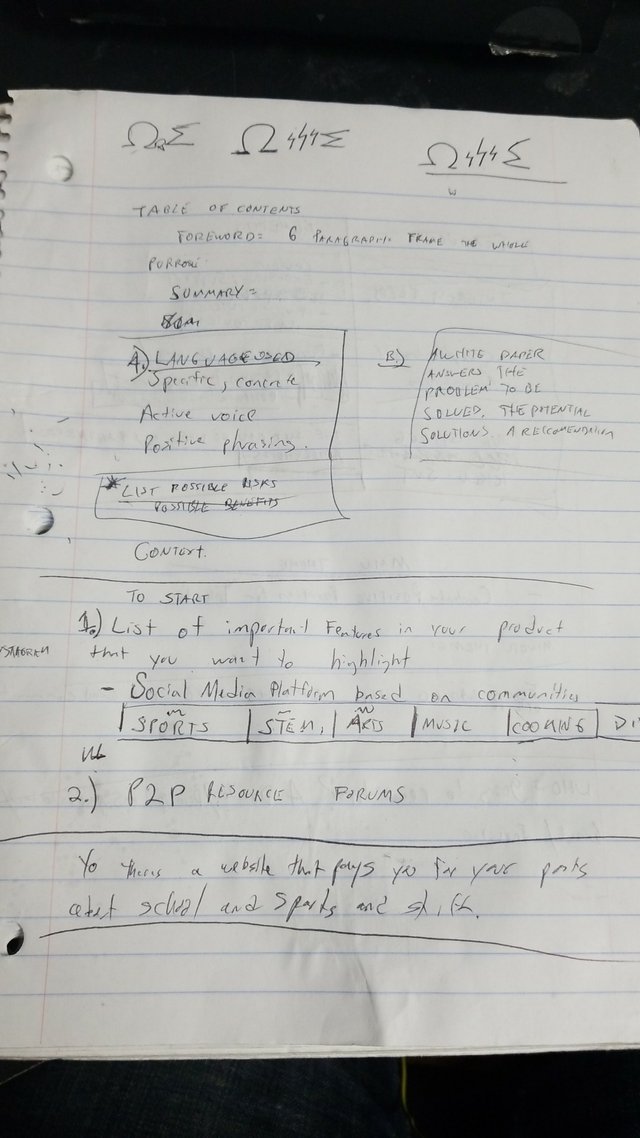 Ω Σ Ω ϟϟϟ Σ Ω ϟϟϟ Σ
W
TABLE OF CONTENTS
FOREWORD = 6 PARAGRAPH. FRAME THE WHOLE
PURPOSE:
SUMMARY =
A.) LANGUAGE USED
Specific, concrete
Active voice
Positive phrasing.
* LIST POSSIBLE RISKS
POSSIBLE BENEFITS
B.) A WHITE PAPER
ANSWERS THE
PROBLEM TO BE
SOLVED, THE POTENTIAL
SOLUTIONS. A RECCOMENDATION
CONTEXT.
TO START
1.) List of important Features in your product
that you want to highlight
- Social Media Platform based on communities
SPORTS | STEM, | ARTS | MUSIC | COOKING | DI
2.) P2P RESOURCE FORUMS
Yo theres a website that pays you for your posts
about school and sports and shit.